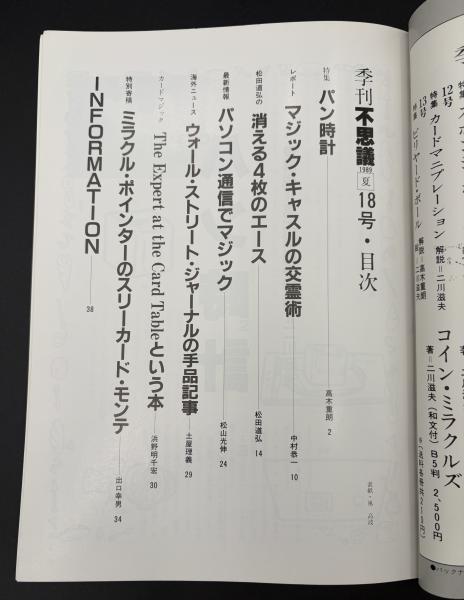 季刊不思議 1989 夏 18号・目次
特集 パン時計 高木重朗 2
レポート マジック・キャスルの交霊術 中村恭一 10
松田道弘の 消える4枚のエース 松田道弘 14
最新情報 パソコン通信でマジック 松山光伸 24
海外ニュース ウォール・ストリート・ジャーナルの手品記事 土屋理義 29
カードマジック The Expert at the Card Tableという本 浜野明千宏 30
特別寄稿 ミラクル・ポインターのスリーカード・モンテ 出口幸男 34
INFORMATION 38
12号
特集 カードマニプレーション 解説=二川滋夫
13号
特集 ビリヤード・ボール 解説=高木重朗
コイン・ミラクルズ
著=二川滋夫(和文付)B5判 2,500円